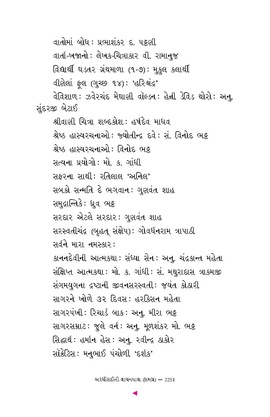 વાતોમાં બોધ : પ્રભાશંકર દ. પટ્ટણી
વાર્તા-ખજાનો : લેખક-ચિત્રાકાર વી. રામાનુજ
વિદ્યાર્થી ઘડતર ગ્રંથમાળા (૧-૭) : મુકુલ કલાર્થી
વીણેલાં ફૂલ (ગુચ્છ ૧૪) : 'હરિશ્ચંદ્ર'
વેવિશાળ : ઝવેરચંદ મેઘાણી વોલ્ડન : હેન્રી ડેવિડ થોરો : અનુ.
સુંદરજી બેટાઈ
શ્રીવાણી ચિત્રા શબ્દકોશ : હર્ષદેવ માધવ
શ્રેષ્ઠ હાસ્યરચનાઓ : જ્યોતીન્દ્ર દવે : સં. વિનોદ ભટ્ટ
શ્રેષ્ઠ હાસ્યરચનાઓ : વિનોદ ભટ્ટ
સત્યના પ્રયોગો : મો. ક. ગાંધી
સફરના સાથી : રતિલાલ 'અનિલ'
સબકો સન્મતિ દે ભગવાન : ગુણવંત શાહ
સમુદ્રાન્તિકે : ધ્રુવ ભટ્ટ
સરદાર એટલે સરદાર : ગુણવંત શાહ
સરસ્વતીચંદ્ર (બૃહત્ સંક્ષેપ) : ગોવર્ધનરામ ત્રાપાઠી
સર્વને મારા નમસ્કાર :
કાનનદેવીની આત્મકથા : સંધ્યા સેન : અનુ. ચંદ્રકાન્ત મહેતા
સંક્ષિપ્ત આત્મકથા : મો. ક. ગાંધી : સં. મથુરાદાસ ત્રાકમજી
સંગમયુગના દ્રષ્ટાની જીવનસરસ્વતી : જયંત કોઠારી
સાગરને ખોળે ૩૨ દિવસ : હરકિસન મહેતા
સાગરપંખી : રિચાર્ડ બાક : અનુ. મીરા ભટ્ટ
સાગરસમ્રાટ : જુલે વર્ન : અનુ. મૂળશંકર મો. ભટ્ટ
સિદ્ધાર્થ : હર્માન હેસ : અનુ. રવીન્દ્ર ઠાકોર
સૉક્રેટિસ : મનુભાઈ પંચોળી 'દર્શક'